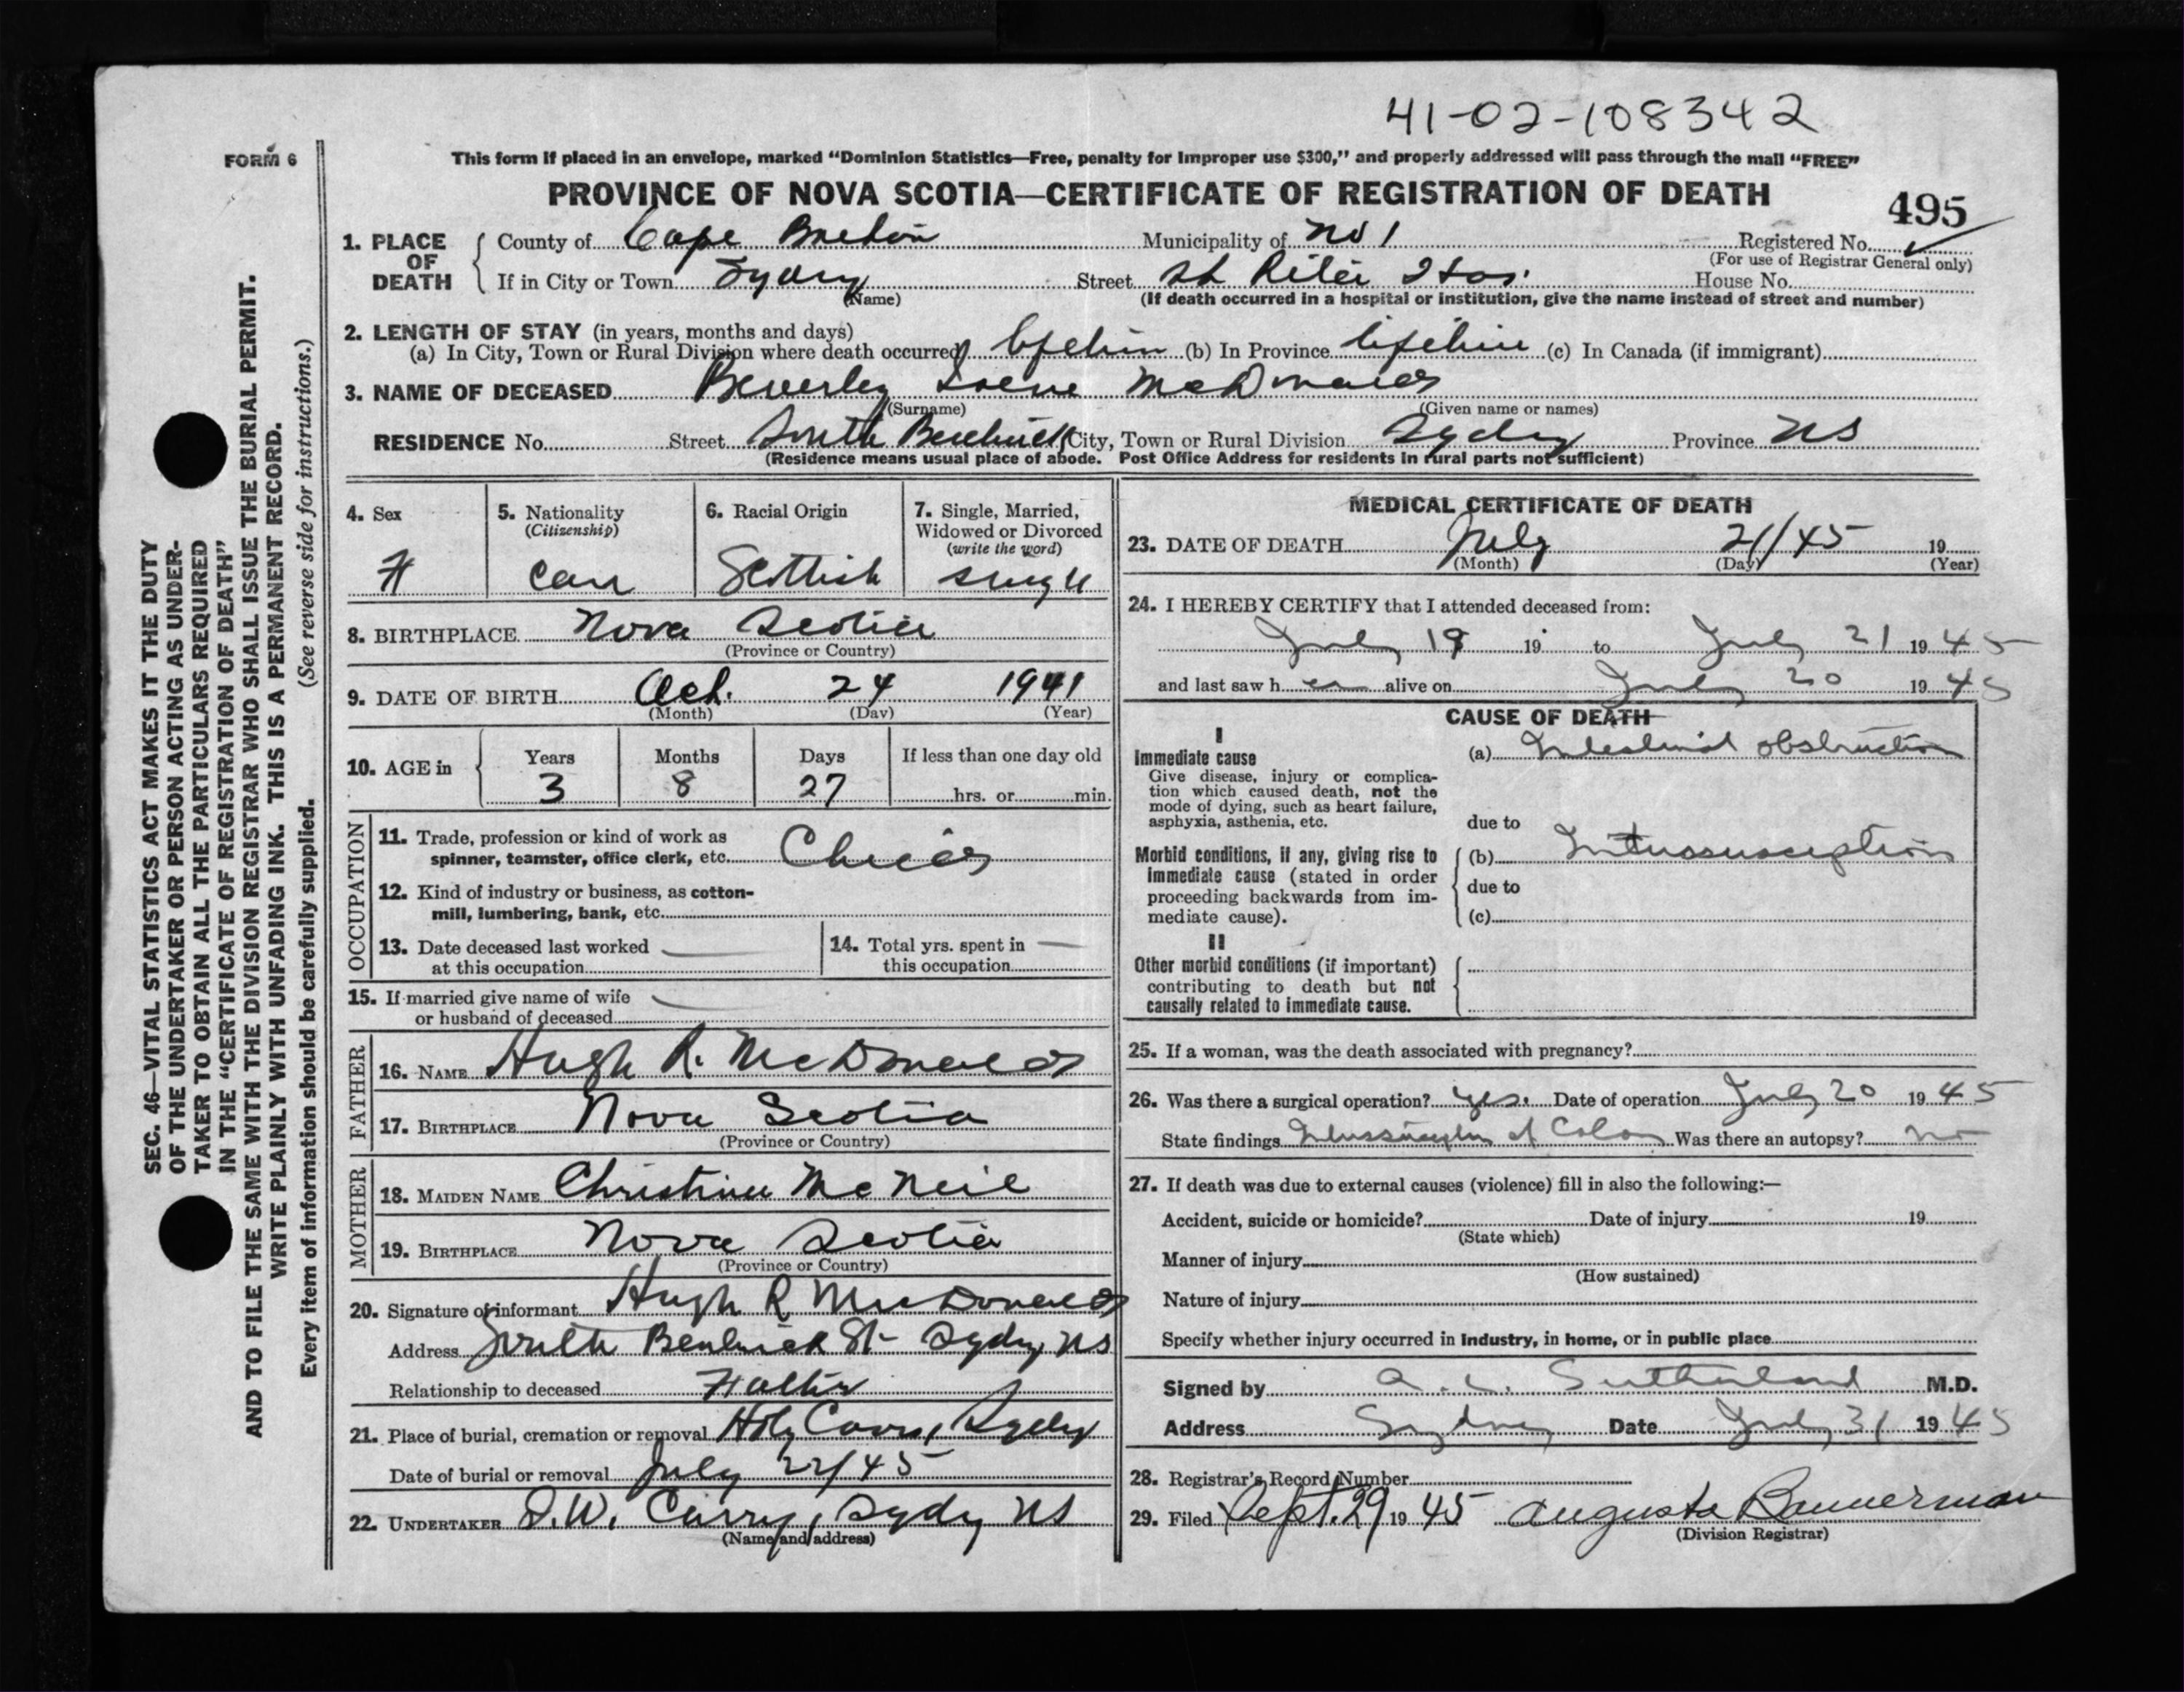 41-02-108342
FORM 6
This form if placed in an envelope, marked “Dominion Statistics—Free, penalty for improper use $300,” and properly addressed will pass through the mail “FREE”
PROVINCE OF NOVA SCOTIA—CERTIFICATE OF REGISTRATION OF DEATH
495
1. PLACE OF DEATH
County of Cape Breton Municipality of No 1 Registered No.
(For use of Registrar General only)
If in City or Town Sydney Street St Rita Hos. House No.
(Name) (If death occurred in a hospital or institution, give the name instead of street and number)
2. LENGTH OF STAY (in years, months and days)
(a) In City, Town or Rural Division where death occurred lifetime (b) In Province lifetime (c) In Canada (if immigrant)
3. NAME OF DECEASED Beverley McDonald
(Surname) (Given name or names)
RESIDENCE No. Street South City, Town or Rural Division Sydney Province NS
(Residence means usual place of abode. Post Office Address for residents in rural parts not sufficient)
4. Sex
F
5. Nationality
(Citizenship)
Can
6. Racial Origin
Scottish
7. Single, Married,
Widowed or Divorced
(write the word)
Single
8. BIRTHPLACE Nova Scotia
(Province or Country)
9. DATE OF BIRTH Oct. 24 1941
(Month) (Day) (Year)
10. AGE in
Years Months Days If less than one day old
3 8 27 hrs. or min.
OCCUPATION
11. Trade, profession or kind of work as
spinner, teamster, office clerk, etc. Child
12. Kind of industry or business, as cotton-
mill, lumbering, bank, etc.
13. Date deceased last worked
at this occupation
14. Total yrs. spent in
this occupation
15. If married give name of wife
or husband of deceased
FATHER
16. NAME Hugh R. McDonald
17. BIRTHPLACE Nova Scotia
(Province or Country)
MOTHER
18. MAIDEN NAME Christina McNeil
19. BIRTHPLACE Nova Scotia
(Province or Country)
20. Signature of informant Hugh R McDonald
Address South St Sydney, NS
Relationship to deceased Father
21. Place of burial, cremation or removal Holy Cross, Sydney
Date of burial or removal July 22/45
22. UNDERTAKER Curry, Sydney NS
(Name and address)
MEDICAL CERTIFICATE OF DEATH
23. DATE OF DEATH July 21/45 19
(Month) (Day) (Year)
24. I HEREBY CERTIFY that I attended deceased from:
July 19 19 to July 21 1945
and last saw h er alive on July 20 1945
CAUSE OF DEATH
I
Immediate cause
Give disease, injury or complica-
tion which caused death, not the
mode of dying, such as heart failure,
asphyxia, asthenia, etc.
(a) Intestinal obstruction
due to
Morbid conditions, if any, giving rise to
immediate cause (stated in order
proceeding backwards from im-
mediate cause).
(b) Intussusception
due to
(c)
II
Other morbid conditions (if important)
contributing to death but not
causally related to immediate cause.
25. If a woman, was the death associated with pregnancy?
26. Was there a surgical operation? yes. Date of operation July 20 1945
State findings Intussusception of Colon Was there an autopsy? no
27. If death was due to external causes (violence) fill in also the following:—
Accident, suicide or homicide? Date of injury 19
(State which)
Manner of injury
(How sustained)
Nature of injury
Specify whether injury occurred in industry, in home, or in public place
Signed by A. L. Sutherland M.D.
Address Sydney Date July 31 1945
28. Registrar's Record Number
29. Filed Sept. 29 1945 Augusta Bannerman
(Division Registrar)
SEC. 46—VITAL STATISTICS ACT MAKES IT THE DUTY
OF THE UNDERTAKER OR PERSON ACTING AS UNDER-
TAKER TO OBTAIN ALL THE PARTICULARS REQUIRED
IN THE “CERTIFICATE OF REGISTRATION OF DEATH”
AND TO FILE THE SAME WITH THE DIVISION REGISTRAR WHO SHALL ISSUE THE BURIAL PERMIT.
WRITE PLAINLY WITH UNFADING INK. THIS IS A PERMANENT RECORD.
Every item of information should be carefully supplied. (See reverse side for instructions.)